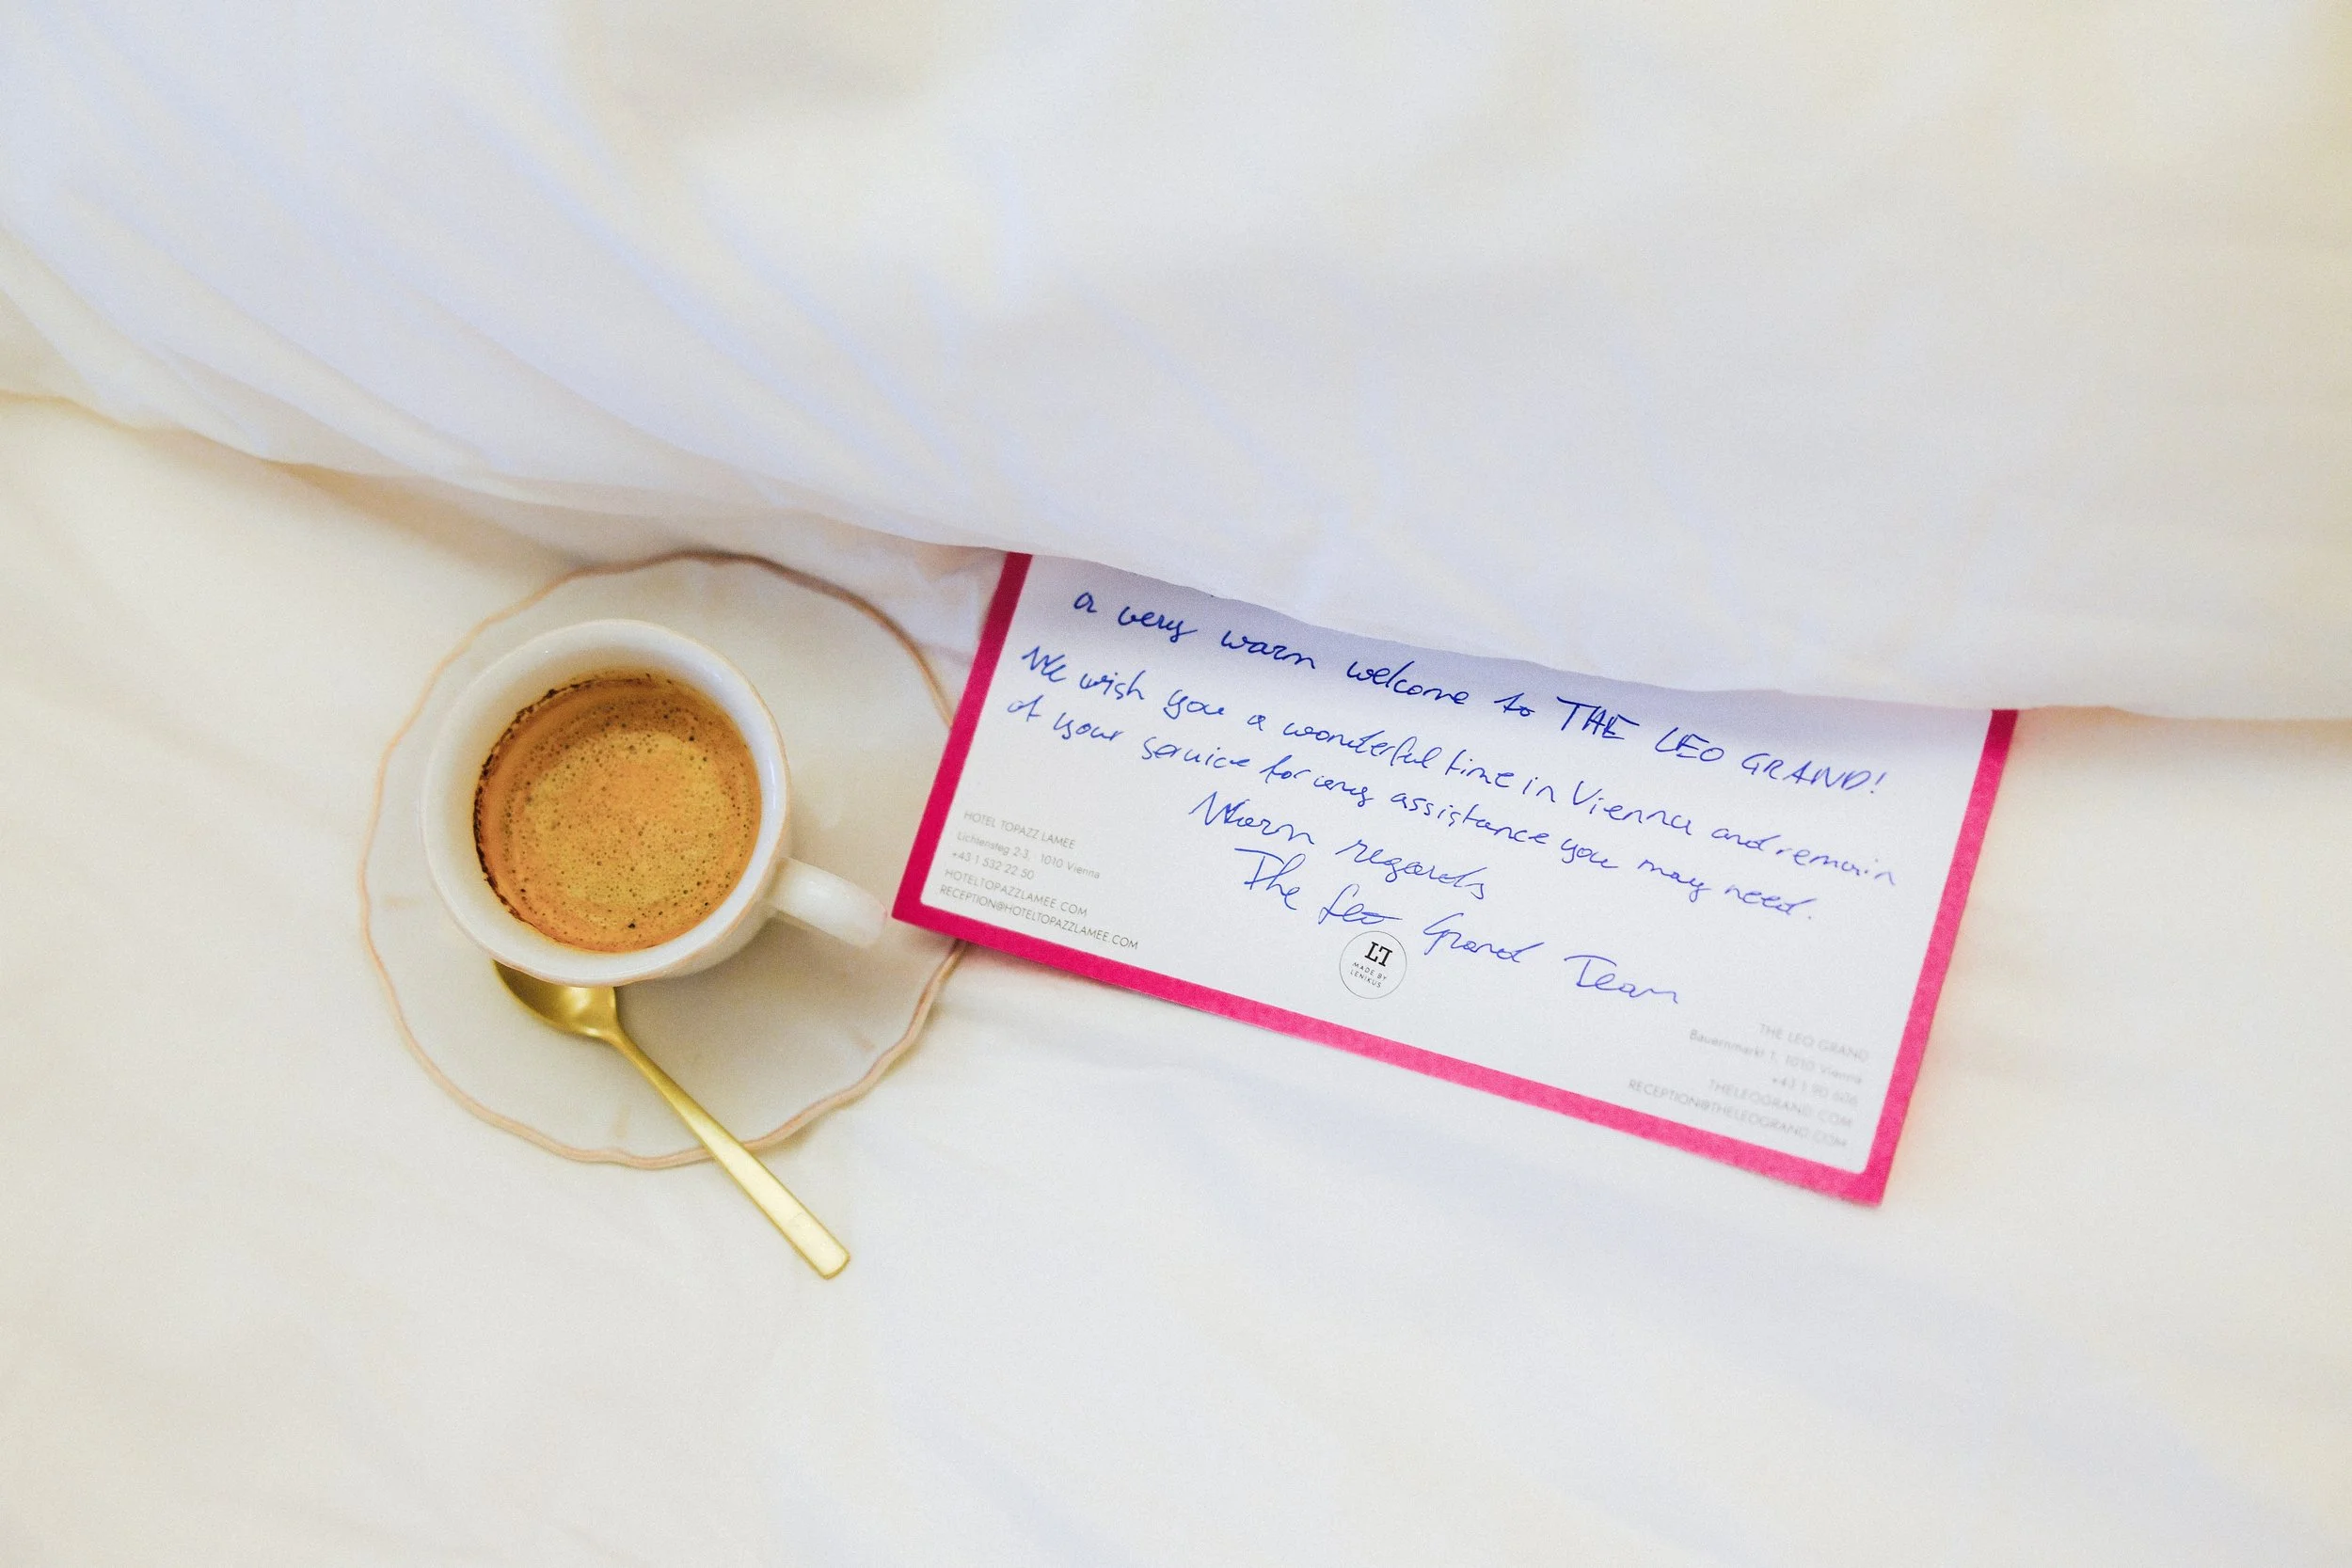 a very warm welcome to THE LEO GRAND!
We wish you a wonderful time in Vienna and remain
at your service for any assistance you may need.
Warm regards
The Leo Grand Team
HOTEL TOPAZZ LAMEE
Lichtensteg 2-3, 1010 Vienna
+43 1 532 22 50
HOTELTOPAZZLAMEE.COM
RECEPTION@HOTELTOPAZZLAMEE.COM
LT
MADE BY
LENIKUS
THE LEO GRAND
Bauernmarkt 1, 1010 Vienna
+43 1 90 606
THELEOGRAND.COM
RECEPTION@THELEOGRAND.COM